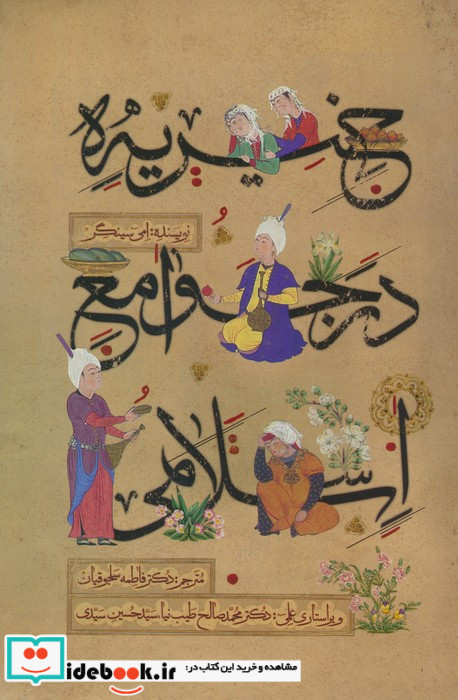 خیریه
نویسنده: امی سینگر
در جوامع
اسلامی
مترجم: دکتر فاطمه سلجوقیان
ویراستاری علمی: دکتر محمدصالح طیب نیا، سید حسین سیدی
مشاهده و خرید این کتاب در:
idebook.ir